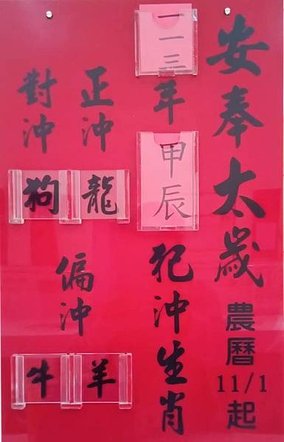 安奉太歲
農曆
11/1
起
一一三年
甲辰
犯沖生肖
正沖
龍
對沖
狗
偏沖
羊
牛